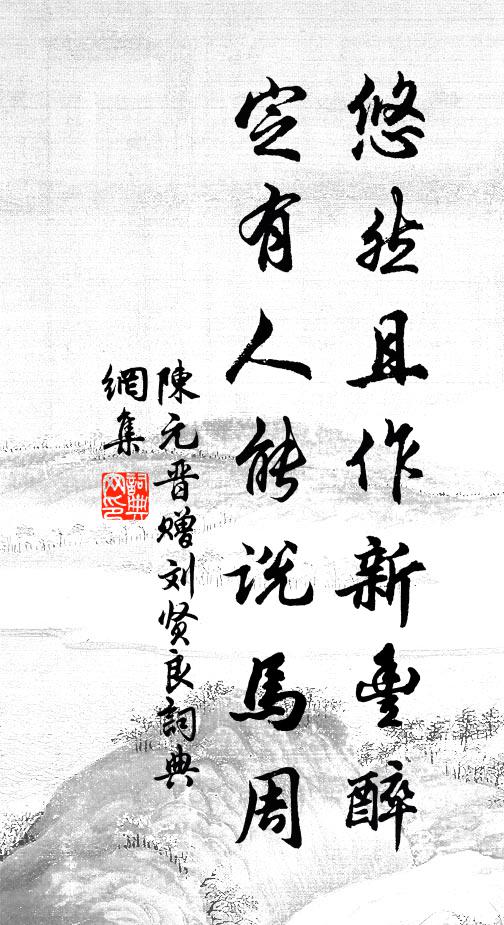 悠然且作新豐醉
定有人能说馬周
陳元晋赠刘贤良詞典
網集
詞典
网印